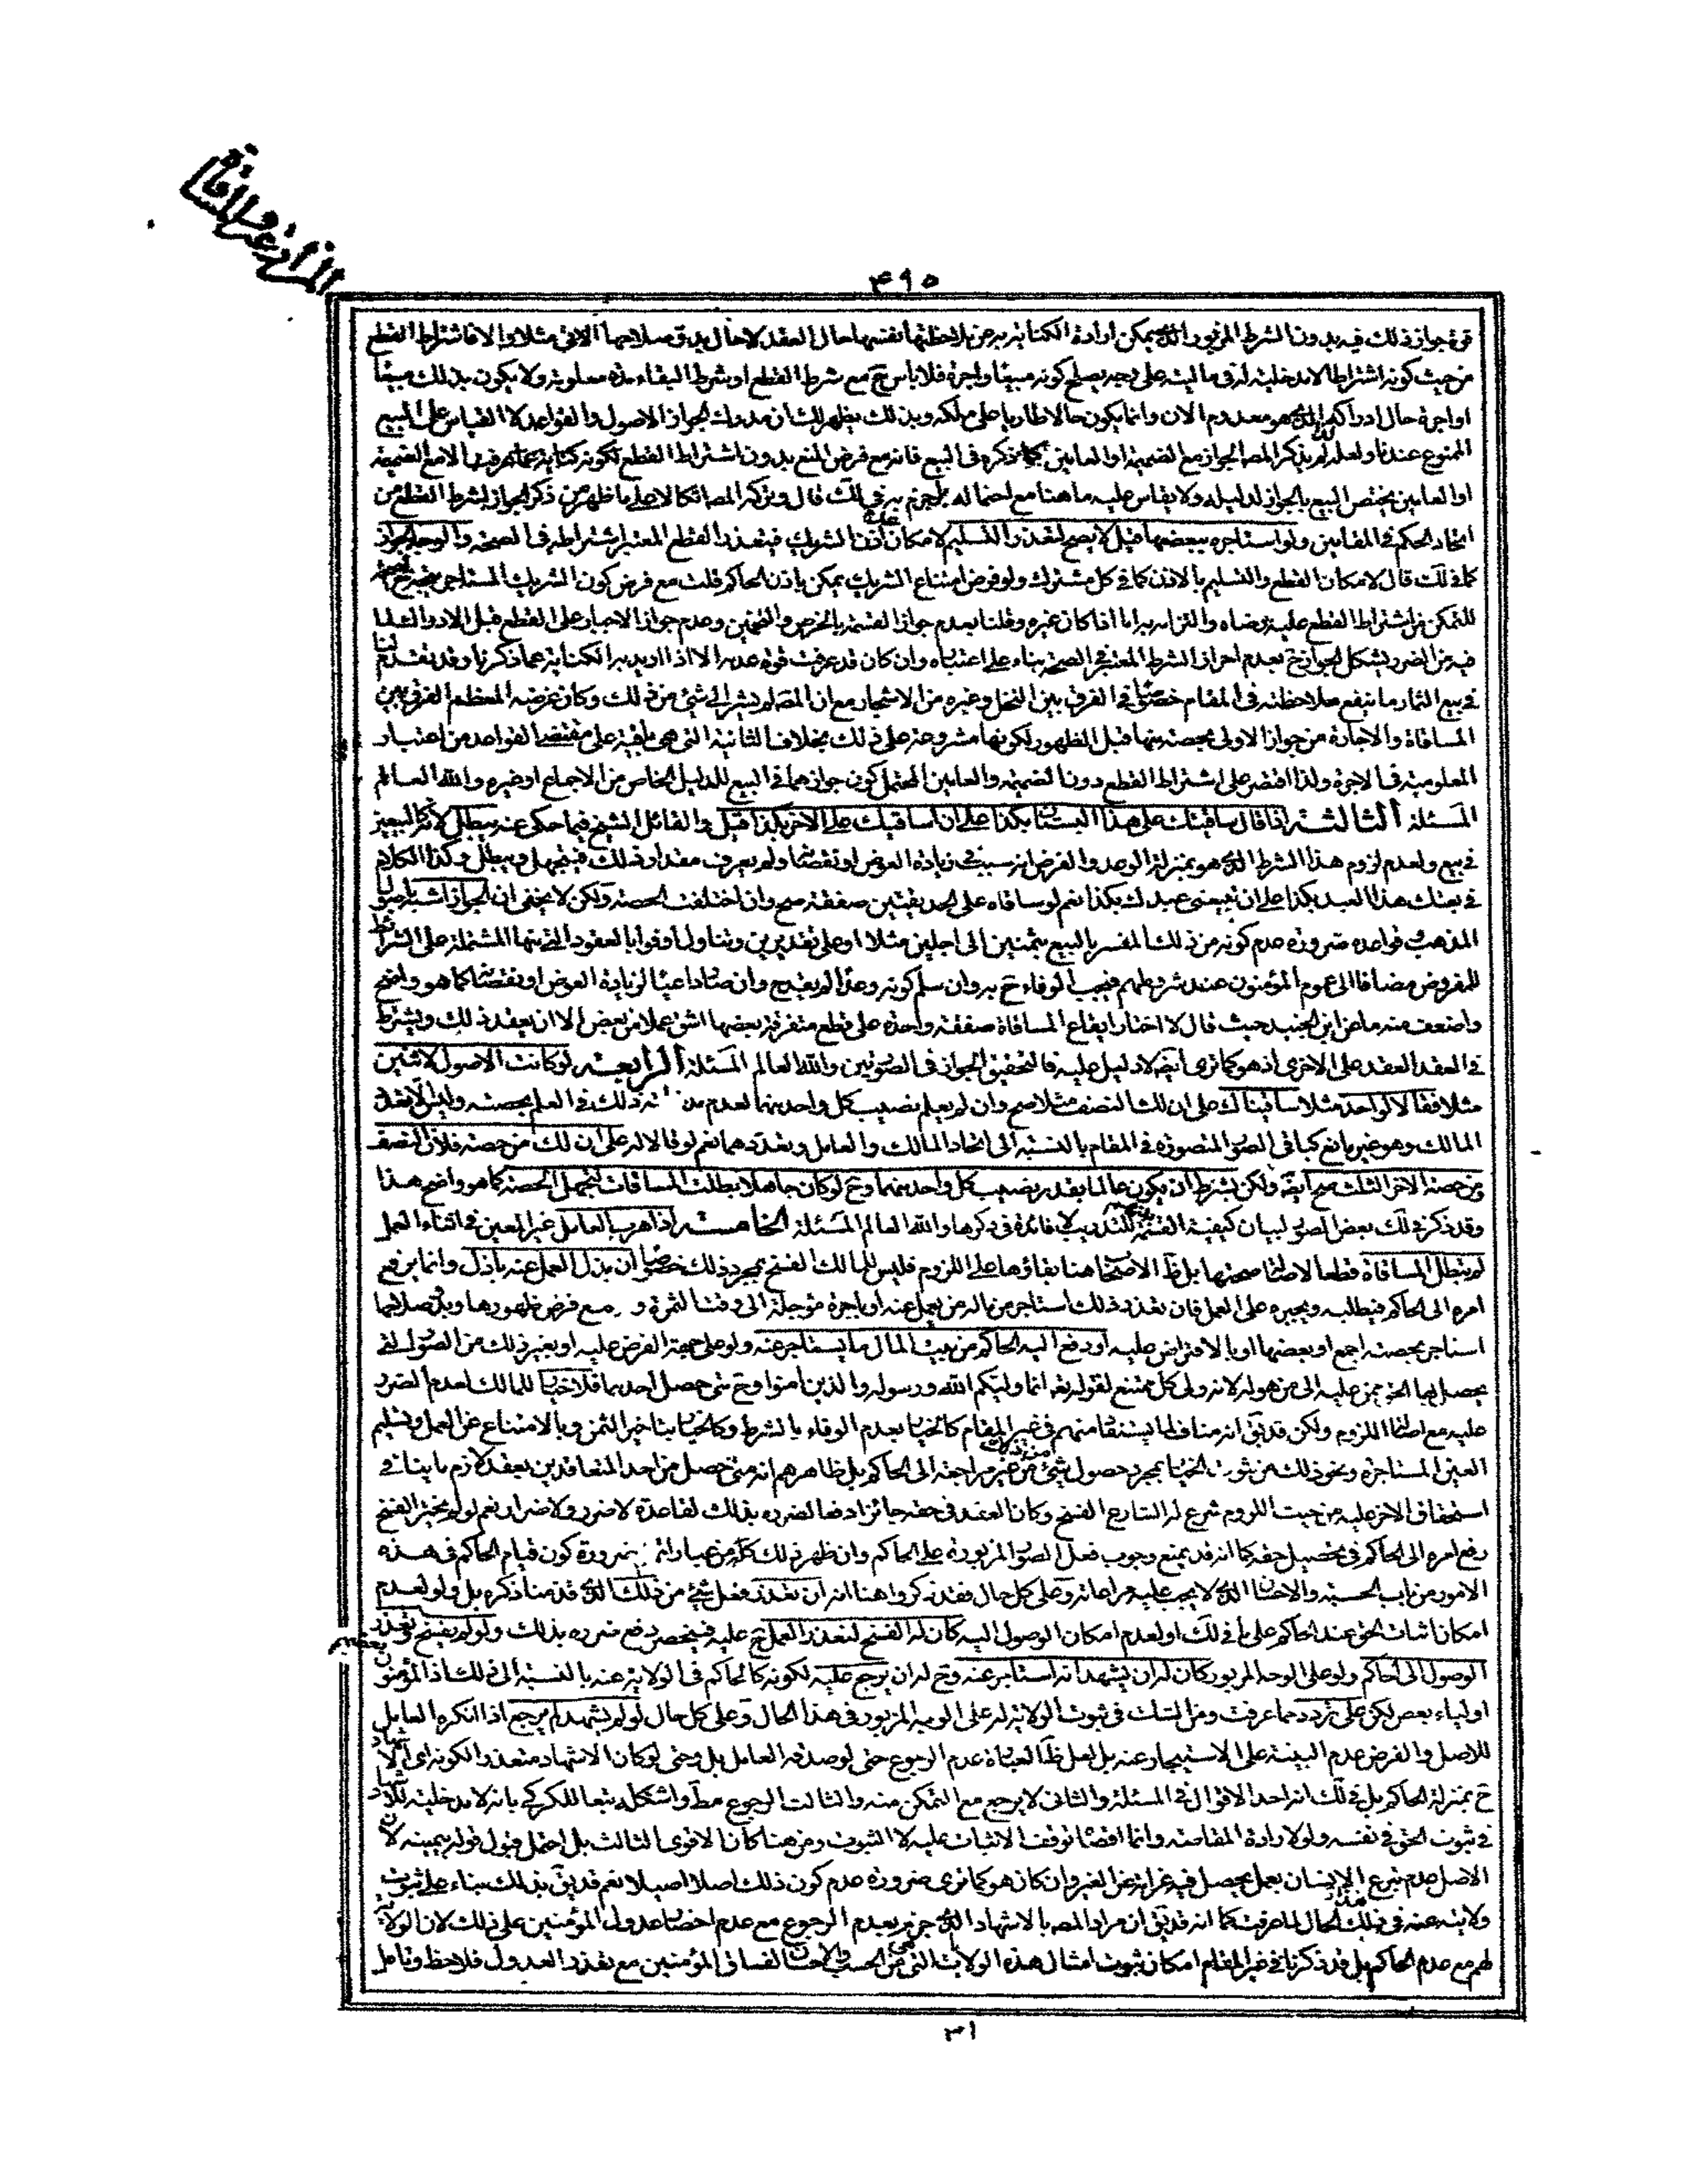 المزارعة والمساقاة
٤٩٥
قوة جواز ذلك فيه بدون الشرط المزبور الذي يمكن ارادة الكناية به عن ملاحظتها نفسها حال العقد لا حال بدو صلاحها الاتى مثلا والا فاشتراط القطع
من حيث كونه اشتراطا لا مدخلية له فى ماليته على وجه يصلح كونه مبيعا واجرة فلا باس ح مع شرط القطع او شرط البقاء مدة معلومة ولا يكون بذلك مبيعا
او اجرة حال ادراكه الذي هو معدوم الان وانما يكون حالا طاريا على ملكه وبذلك يظهر لك ان مدرك الجواز الاصول والقواعد لا القياس على البيع
الممنوع عندنا ولعله لذا لم يذكر المصـ الجواز مع الضميمة او العامين كما ذكره فى البيع فانه مع فرض المنع بدون اشتراط القطع لكونه كناية عما عرفت الا مع الضميمة
او العامين يختص البيع بالجواز لدليله ولا يقاس عليه ما هنا مع احتماله بل جزم به فى لك قال وتركه المصـ اتكالا على ما ظهر من ذكر الجواز بشرط القطع من
اتحاد الحكم فى المقامين ولو استاجره ببعضها قيل لا يصح لتعذر التسليم لامكان عدم اذن الشريك فيتعذر القطع المعتبر اشتراطه فى الصحة والوجه الجواز
كما فى لك قال لامكان القطع والتسليم بالاذن كما فى كل مشترك ولو فرض امتناع الشريك يمكن باذن الحاكم قلت مع فرض كون الشريك المستاجر يتجه ح الصحة
للتمكن من اشتراط القطع عليه برضاه والتزامه به اما اذا كان غيره وقلنا بعدم جواز القسمة بالخرص والتخمين وعدم جواز الاجبار على القطع قبل الادراك لما
فيه من الضرر يشكل الجواز ح بعدم احراز الشرط المعتبر فى الصحة بناء على اعتباره وان كان قد عرفت قوة عدمه الا اذا اريد به الكناية عما ذكرنا وقد تقدم لنا
فى بيع الثمار ما ينفع ملاحظته فى المقام خصوصا فى الفرق بين النخل وغيره من الاشجار مع ان المصـ لم يشر الى شئ من ذلك وكان غرضه المعظم الفرق بين
المساقاة والاجارة من جواز الاولى بحصة منها قبل الظهور لكونها مشروعة على ذلك بخلاف الثانية التى هى باقية على مقتضى القواعد من اعتبار
المعلومية فى الاجرة ولذا اقتصر على اشتراط القطع دون الضميمة والعامين المحتمل كون جوازهما فى البيع للدليل الخاص من الاجماع او غيره والله العالم
المسئلة الثالثة اذا قال ساقيتك على هذا البستان بكذا على ان اساقيك على الاخر بكذا قيل والقائل الشيخ فيما حكى عنه يبطل لانه كالبيعين
فى بيع ولعدم لزوم هذا الشرط الذي هو بمنزلة الوعد والفرض انه سبب فى زيادة العوض او نقصانه ولم يعرف مقدار ذلك فيتجهل ويبطل وكذا الكلام
فى بعتك هذا العبد بكذا على ان تبيعنى عبدك بكذا نعم لو ساقاه على الحديقتين صفقة صح وان اختلفت الحصة ولكن لا يخفى ان الجواز اشبه باصول
المذهب وقواعده ضرورة عدم كونه من ذلك المفسر بالبيع بثمنين الى اجلين مثلا او على تقديرين وتناول اوفوا بالعقود التى منها المشتملة على الشرائط
للمفروض مضافا الى عموم المؤمنون عند شروطهم فيجب الوفاء ح به وان سلم كونه وعدا لم يقدح وان صار داعيا لزيادة العوض او نقصانه كما هو واضح
واضعف منه ما عن ابن الجنيد حيث قال لا اختار ايقاع المساقاة صفقة واحدة على قطع متفرقة بعضها اشق عملا من بعض الا ان يعقد ذلك ويشترط
فى العقد العقد على الاخرى اذ هو كما ترى ايضا لا دليل عليه فالتحقيق الجواز فى الصورتين والله العالم المسئلة الرابعة لو كانت الاصول لاثنين
مثلا فقالا لواحد مثلا ساقيناك على ان لك النصف مثلا صح وان لم يعلم نصيب كل واحد منهما لعدم ذلك فى العلم بحصته وليس الا تعدد
المالك وهو غير مانع كباقى الصور المتصورة فى المقام بالنسبة الى اتحاد المالك والعامل وتعددهما نعم لو قالا له على ان لك من حصة فلان النصف
ومن حصة الاخر الثلث صح ايضا ولكن بشرط ان يكون عالما بقدر نصيب كل واحد منهما وح لو كان جاهلا بطلت المساقات لتجهل الحصة كما هو واضح هذا
وقد ذكر فى لك بعض الصور لبيان كيفية القسمة للتدريب لا فائدة فى ذكرها والله العالم المسئلة الخامسة اذا هرب العامل غير المعين فى اثناء العمل
لم تبطل المساقاة قطعا لاصالة صحتها بل ظ الاصحاب هنا بقاؤها على اللزوم فليس للمالك الفسخ بمجرد ذلك خصوصا ان بذل العمل عنه باذل وانما يرفع
امره الى الحاكم فيطلبه ويجبره على العمل فان تعذر ذلك استاجر من ماله من يعمل عنه او باجرة مؤجلة الى وقت الثمرة و مع فرض ظهورها وبدو صلاحها
استاجر بحصته اجمع او بعضها او بالاقتراض عليه او دفع اليه الحاكم من بيت المال ما يستاجر عنه ولو على جهة القرض عليه او بغير ذلك من الصور التى
يحصل بها الحق ممن عليه الى من هو له لانه ولى كل ممتنع لقوله تعـ انما وليكم الله ورسوله والذين امنوا وح متى حصل احدهما فلا خيار للمالك لعدم الضرر
عليه مع اصالة اللزوم ولكن قد يق انه مناف لما يستفاد منهم فى غير المقام كالخيار بعدم الوفاء بالشرط وكالخيار بتاخير الثمن وبالامتناع عن العمل وتسليم
العين المستاجرة ونحو ذلك من ثبوت الخيار بمجرد حصول شئ من ذلك من غير مراجعة الى الحاكم بل ظاهرهم انه متى حصل من احد المتعاقدين بعقد لازم ما ينافى
استحقاق الاخر عليه من حيث اللزوم شرع له الشارع الفسخ وكان العقد فى حقه جائزا دفعا لضرره بذلك لقاعدة لا ضرر ولا ضرار نعم لو لم يختر الفسخ
رفع امره الى الحاكم فى تحصيل حقه كما انه قد يمنع وجوب فعل الصور المزبورة على الحاكم وان ظهر ذلك كله من عبارات ضرورة كون قيام الحاكم فى هذه
الامور من باب الحسبة والاحسان الذي لا يجب عليه مراعاته وعلى كل حال فقد ذكروا هنا انه ان تعذر فعل شئ من ذلك الذي قدمنا ذكره بل ولو لعدم
امكان اثبات الحق عند الحاكم على ما فى لك او لعدم امكان الوصول اليه كان له الفسخ لتعذر العمل ح عليه فينحصر دفع ضرره بذلك ولو لم يفسخ وتعذر
الوصول الى الحاكم ولو على الوجه المزبور كان له ان يشهد انه استاجر عنه وح له ان يرجع عليه لكونه كالحاكم فى الولاية عنه بالنسبة الى ذلك اذ المؤمنون بعضهم
اولياء بعض لكن على تردد مما عرفت ومن الشك فى ثبوت الولاية له على الوجه المزبور فى هذا الحال وعلى كل حال لو لم يشهد لم يرجع اذا انكره العامل
للاصل والفرض عدم البينة على الاستيجار عنه بل لعل ظ العبارة عدم الرجوع حتى لو صدقه العامل بل وحتى لو كان الاشهاد متعذرا لكونه اى الاشهاد
ح بمنزلة الحاكم بل فى لك انه احد الاقوال فى المسئلة والثانى لا يرجع مع التمكن منه والثالث الرجوع مط واشكله تبعا للكركى بانه لا مدخلية للاشهاد
فى ثبوت الحق فى نفسه ولو لارادة المقاصة وانما اقصاه توقف الاثبات عليه لا الثبوت ومن هنا كان الاقوى الثالث بل احتمل قبول قوله بيمينه لان
الاصل عدم تبرع الانسان بعمل يحصل فيه غرامة عن الغير وان كان هو كما ترى ضرورة عدم كون ذلك اصلا اصيلا نعم قد يق بذلك بناء على ثبوت
ولايته عنه فى هذا الحال لما عرفت كما انه قد يق ان مراد المصـ بالاشهاد الذي جزم بعدم الرجوع مع عدم احضار عدول المؤمنين على ذلك لان الولاية
لهم مع عدم الحاكم بل قد ذكرنا فى غير المقام امكان ثبوت امثال هذه الولايات التى هى من الحسب والاحسان لفساق المؤمنين مع تعذر العدول فلاحظ وتامل
٣١